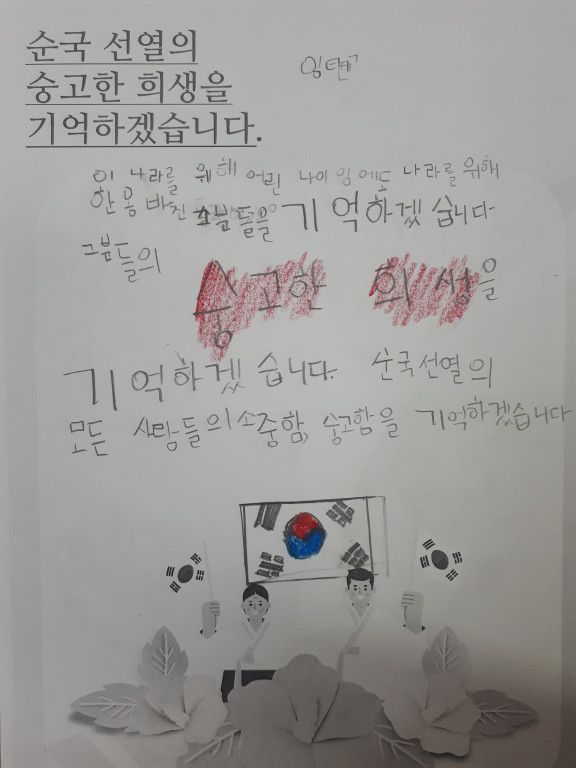 순국 선열의
숭고한 희생을
기억하겠습니다.
이 나라를 위해 어린 나이임에도 나라를 위해
한몸 바친 그분들을 기억하겠습니다
그분들의
숭고한 희쌩을
기억하겠습니다. 순국선열의
모든 사람들의 소중함, 숭고함을 기억하겠습니다